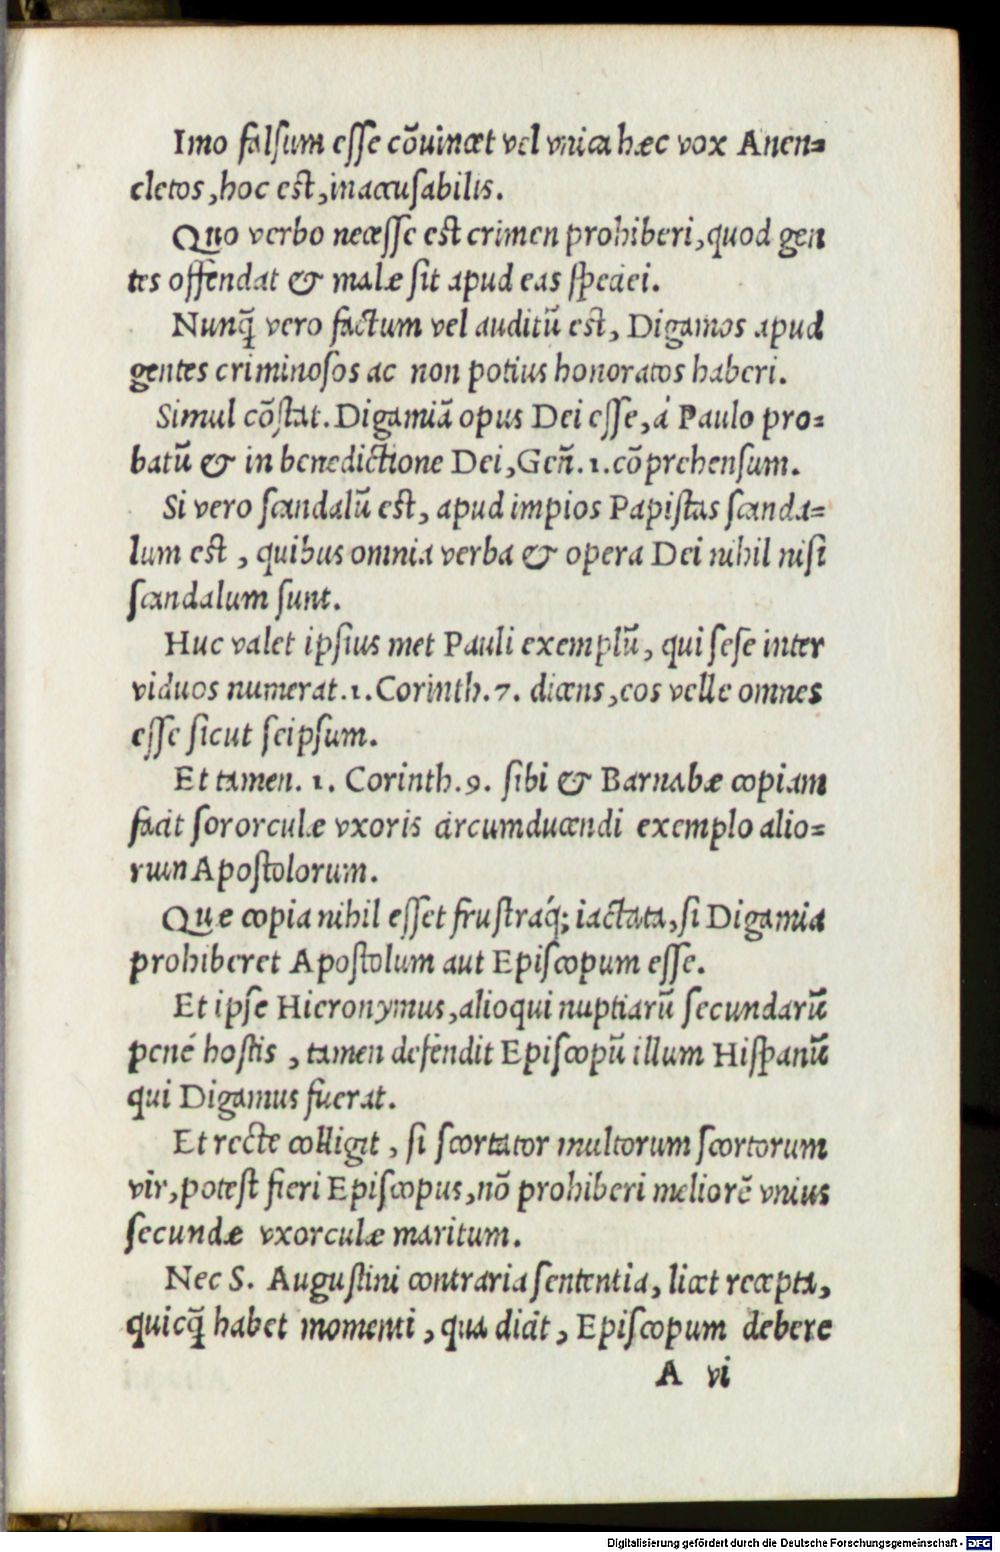 Imo falsum esse cõuincet vel vnica hæc vox Anen=
cletos, hoc est, inaccusabilis.
Quo verbo necesse est crimen prohiberi, quod gen
tes offendat & malæ sit apud eas speciei.
Nunq̃ vero factum vel auditũ est, Digamos apud
gentes criminosos ac non potius honoratos haberi.
Simul cõstat. Digamiã opus Dei esse, á Paulo pro=
batũ & in benedictione Dei, Geñ. 1. cõprehensum.
Si vero scandalũ est, apud impios Papistas scanda=
lum est, quibus omnia verba & opera Dei nihil nisi
scandalum sunt.
Huc valet ipsius met Pauli exemplũ, qui sese inter
viduos numerat. 1. Corinth. 7. dicens, eos velle omnes
esse sicut seipsum.
Et tamen. 1. Corinth. 9. sibi & Barnabæ copiam
facit sororculæ vxoris circumducendi exemplo alio=
rum Apostolorum.
Quæ copia nihil esset frustráq; iactata, si Digamia
prohiberet Apostolum aut Episcopum esse.
Et ipse Hieronymus, alioqui nuptiarũ secundarũ
pené hostis, tamen defendit Episcopũ illum Hispanũ
qui Digamus fuerat.
Et recte colligit, si scortator multorum scortorum
vir, potest fieri Episcopus, nõ prohiberi meliorẽ vnius
secundæ vxorculæ maritum.
Nec S. Augustini contraria sententia, licet recepta,
quicq̃ habet momenti, qua dicit, Episcopum debere
A vi
Digitalisierung gefördert durch die Deutsche Forschungsgemeinschaft - DFG